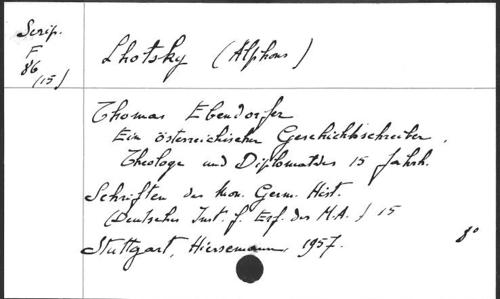 Scrip.
F
86
(15)
Lhotsky (Alphons)
Thomas Ebendorfer
Ein österreichischer Geschichtsschreiber,
Theologe und Diplomat des 15 Jahrh.
Schriften der Mon. Germ. Hist.
(Deutsches Inst. f. Erf. des M.A.) 15
Stuttgart, Hiersemann, 1957. 8°